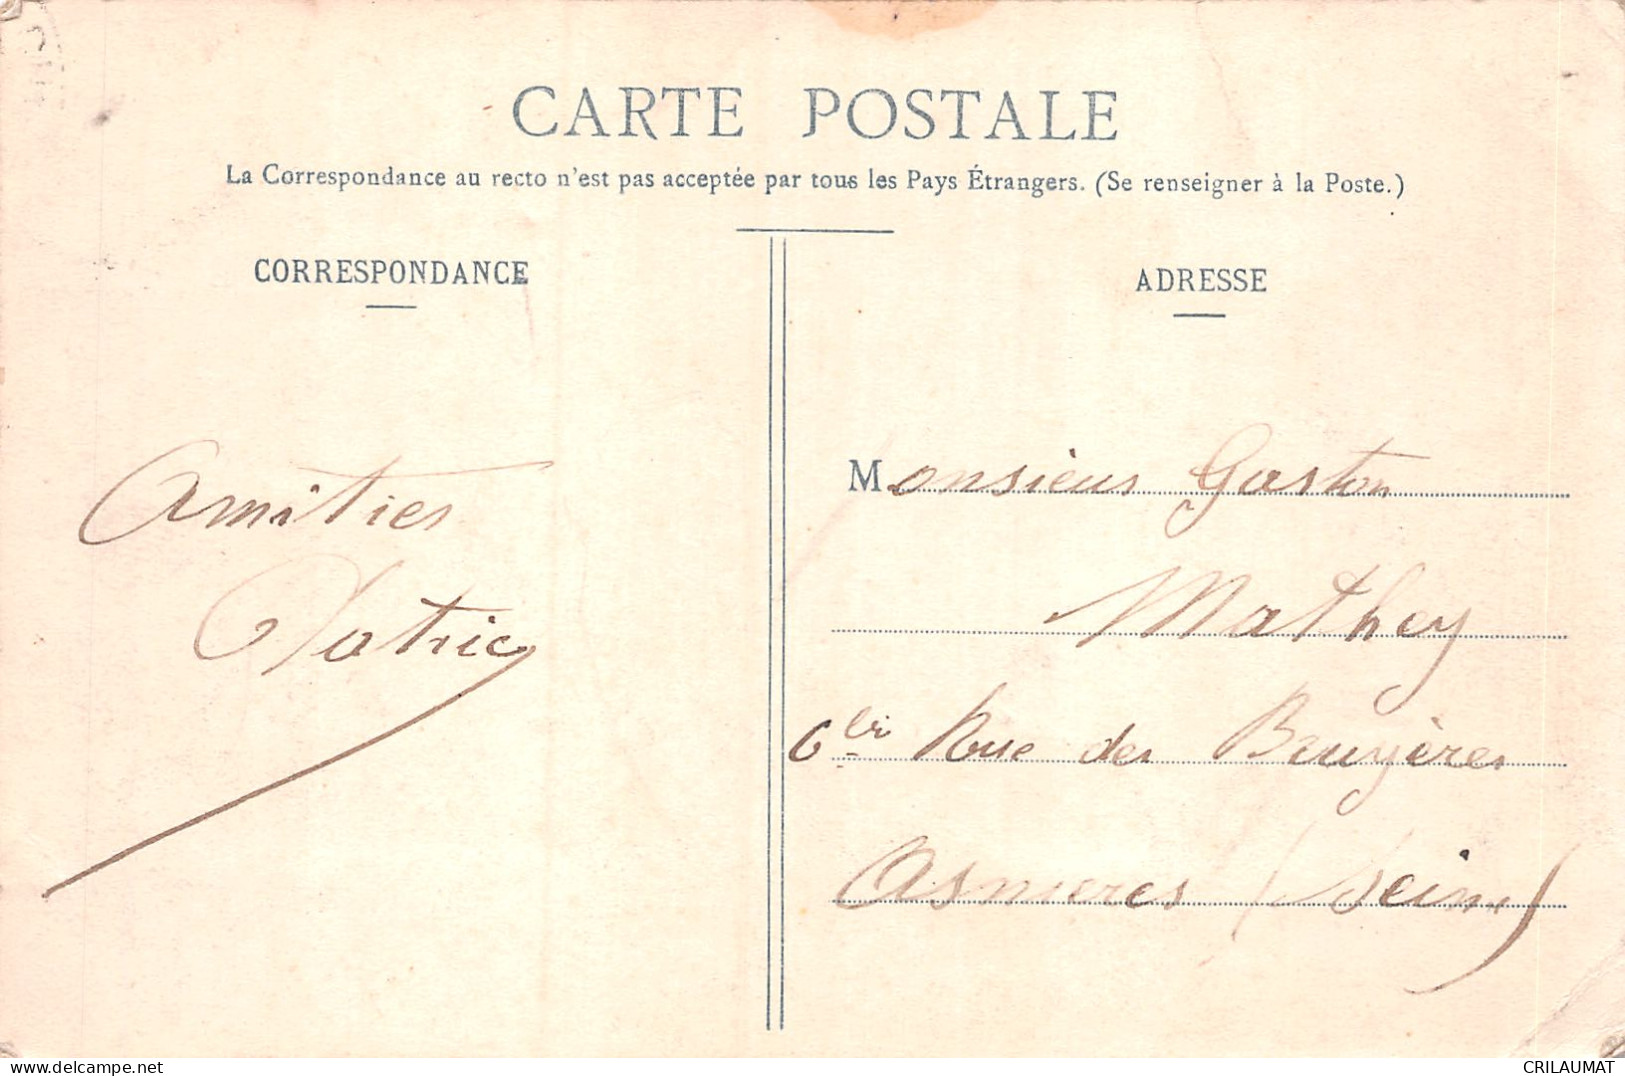 CARTE POSTALE
La Correspondance au recto n'est pas acceptée par tous les Pays Étrangers. (Se renseigner à la Poste.)
CORRESPONDANCE
Amitiés
Patrice
ADRESSE
Monsieur Gaston
Mathey
6 bis Rue des Bruyères
Asnieres (Seine)
CRILAUMAT